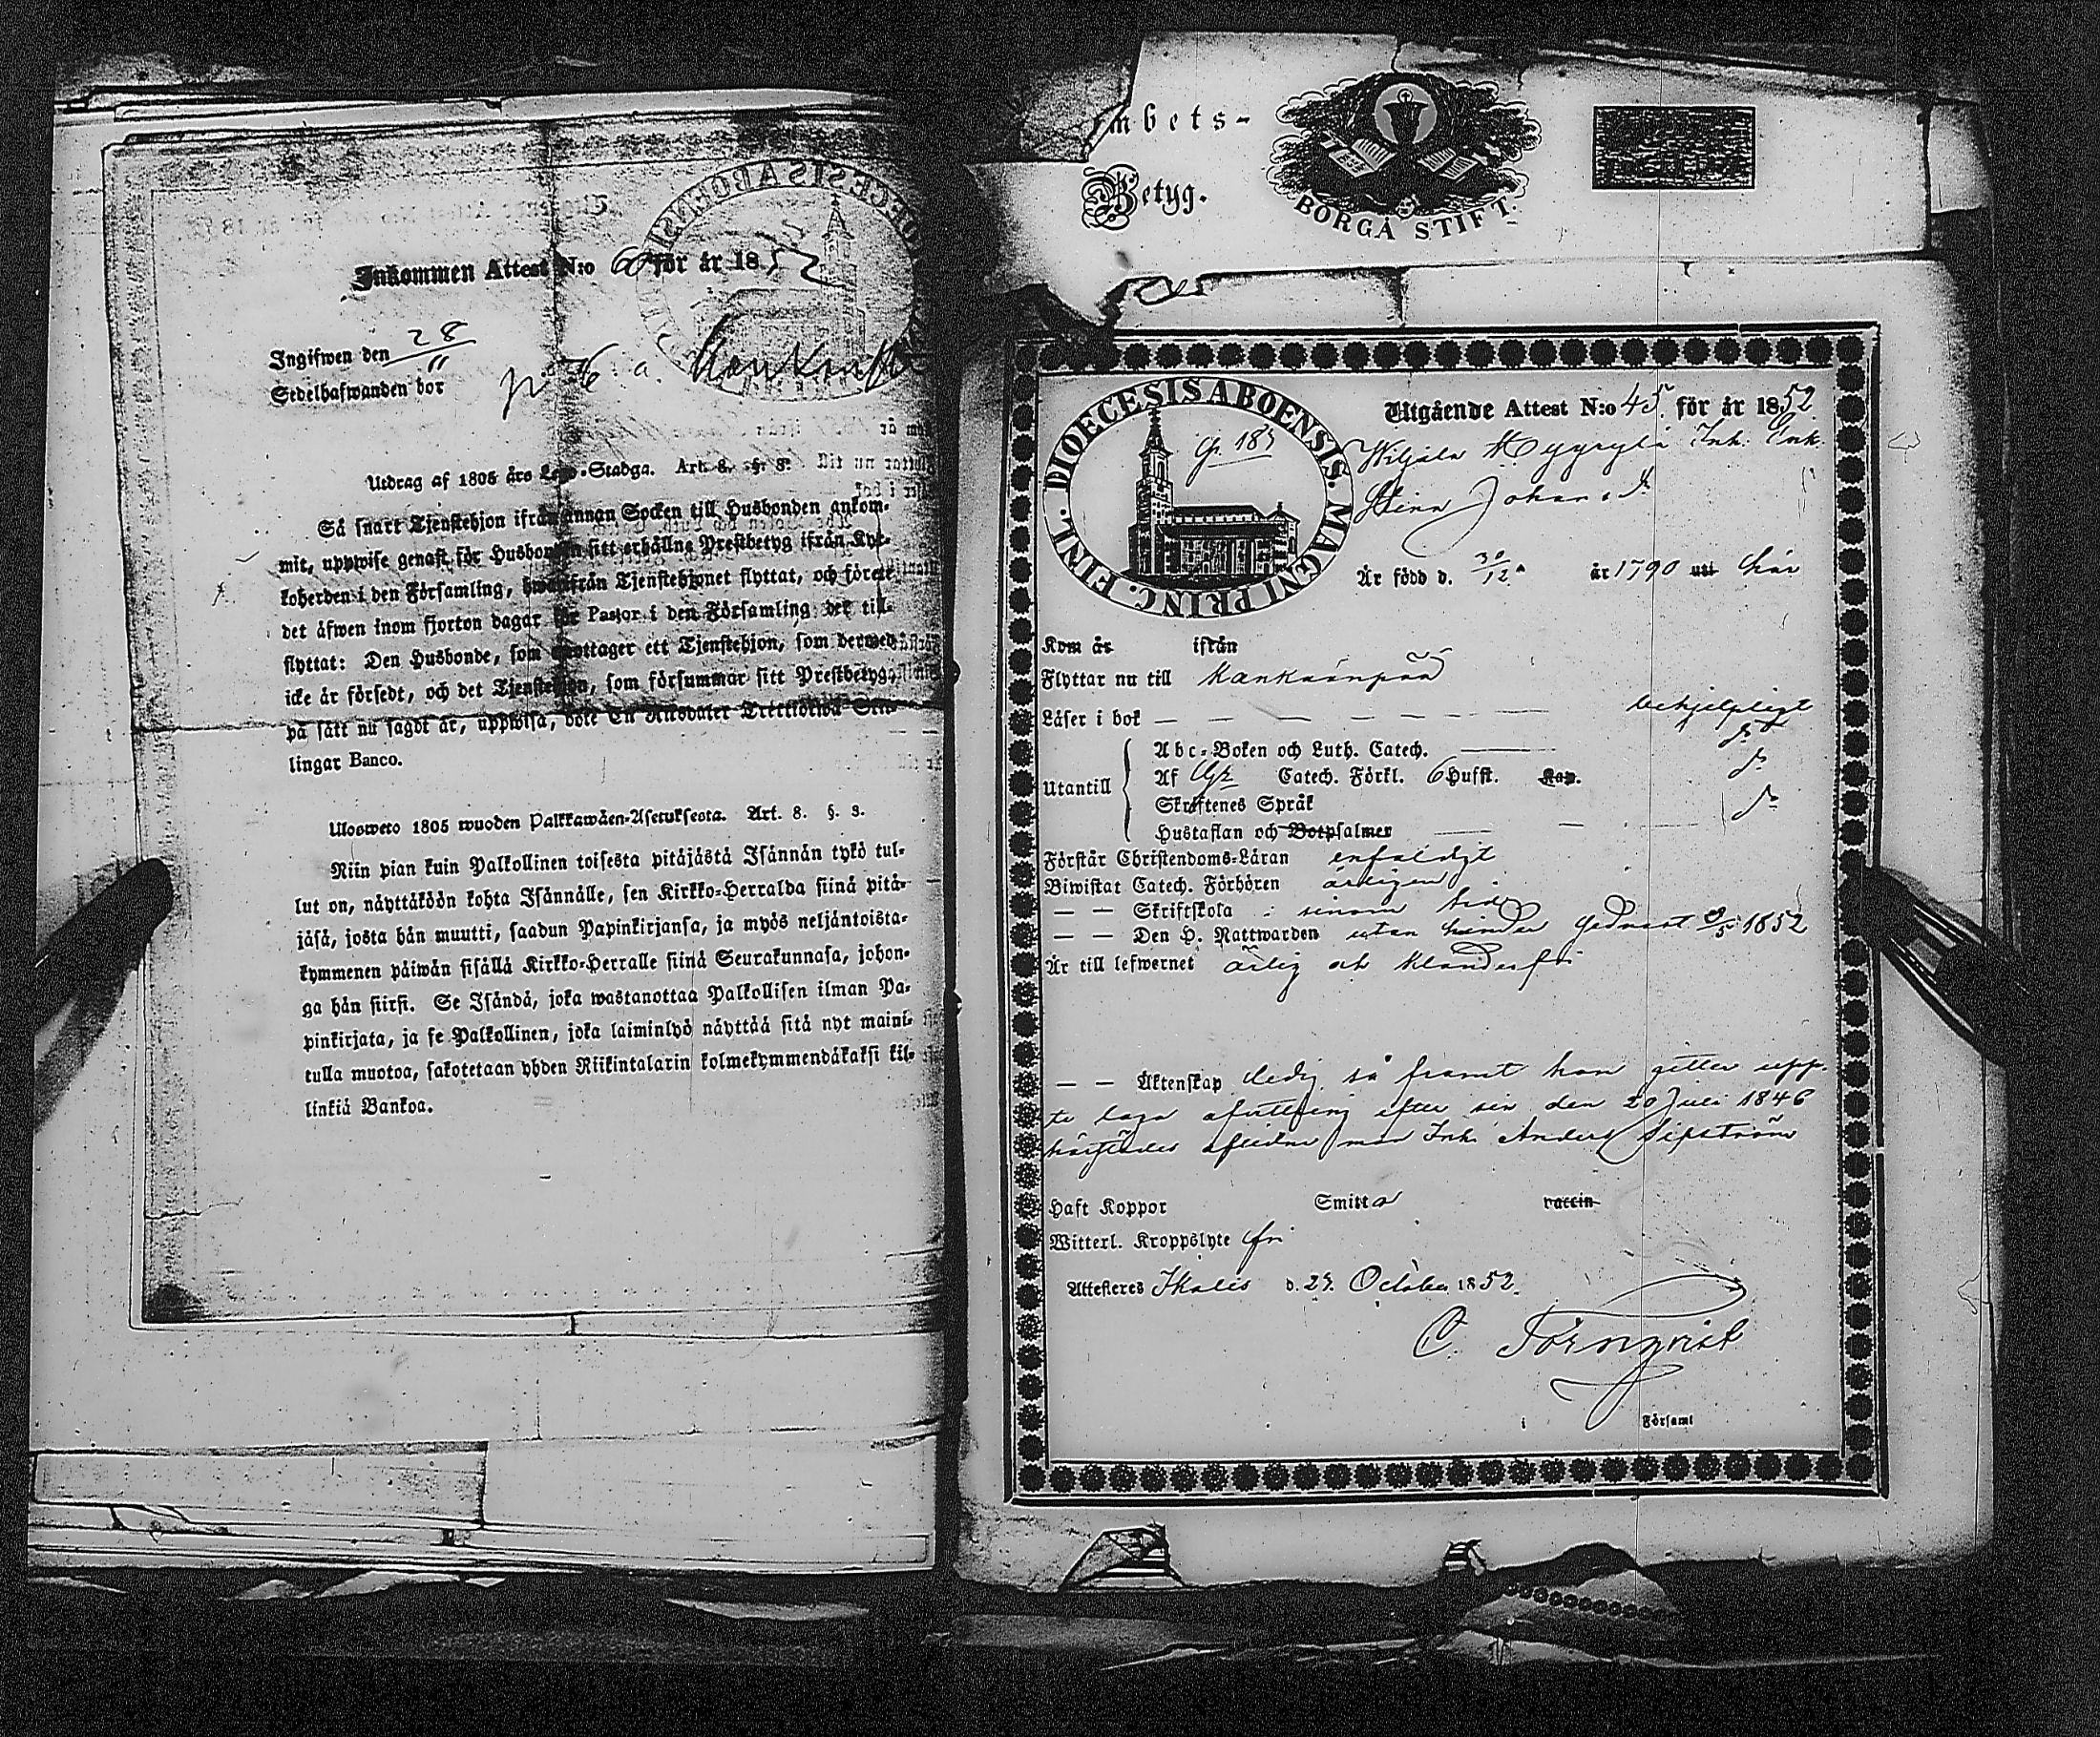 Inkommen Attest N:o 60 för år 1852
Ingifwen den 28/11
Sedelhafwanden bor
Utdrag af 1805 års Lego-Stadga. Art. 8. §. 3.
Så snart Tjenstehjon ifrån annan Socken till Husbonden ankom-
mit, uppwise genast för Husbonden sitt erhållne Prestbetyg ifrån Kyr-
koherden i den Församling, hwarifrån Tjenstehjonet flyttat, och förete
det äfwen inom fjorton dagar för Pastor i den Församling det till-
flyttat: Den Husbonde, som emottager ett Tjenstehjon, som dermed
icke är försedt, och det Tjenstehjon, som försummar sitt Prestbetyg,
på sätt nu sagdt är, uppwisa, böte En Riksdaler Trettiotwå Skil-
lingar Banco.
Ulosweto 1805 wuoden Palkkawäen-Asetuksesta. Art. 8. §. 3.
Niin pian kuin Palkollinen toisesta pitäjästä Isännän tykö tul-
lut on, näyttäköön kohta Isännälle, sen Kirkko-Herralda siinä pitä-
jäsä, josta hän muutti, saadun Papinkirjansa, ja myös neljäntoista-
kymmenen päiwän sisällä Kirkko-Herralle siinä Seurakunnasa, johon-
ga hän siirsi. Se Isändä, joka wastanottaa Palkollisen ilman Pa-
pinkirjata, ja se Palkollinen, joka laiminlyö näyttää sitä nyt maini-
tulla muotoa, sakotetaan yhden Riikintalarin kolmekymmendäkaksi kil-
linkiä Bankoa.
mbets-
Betyg.
BORGÅ STIFT.
DIOECESIS ABOENSIS. MAGNI PRINC. FINL.
Utgående Attest N:o 45. för år 1852
Wiljala Myyrylä Inh. Enk.
Stina Johansd.
Är född d. 30/12 år 1790 uti här
Kom år ifrån
Flyttar nu till Kankaanpää
Läser i bok — — — — — — — behjelpligt
Utantill
Abc-Boken och Luth. Catech. —— do
Af Catech. Förkl. 6 Hufst. Kap. do
Skriftenes Språk
Hustaflan och Botpsalmer — — — do
Förstår Christendoms-Läran enfaldigt
Biwistat Catech. Förhören årligen
— — Skriftskola i sinom tid
— — Den H. Nattwarden utan hinder sednast 9/5 1852
Är till lefwernet ärlig och klanderfri
— — Äktenskap ledig, så framt hon gitter upp-
te laga afvittring efter sin den 20 Juli 1846
härstädes aflidne man Inh. Anders Sipström
Haft Koppor Smitta vaccin
Witterl. Kroppslyte fri
Attesteres Ikalis d. 27. October 1852.
C. Törnqvist
i Församl